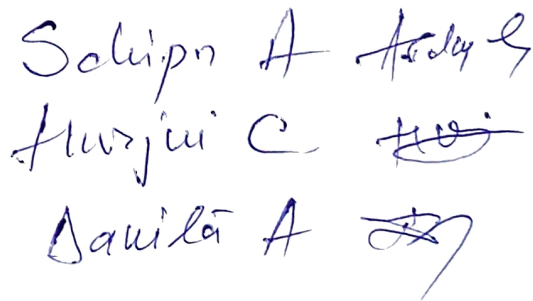 Schipn A
Hurjui C
Danilă A